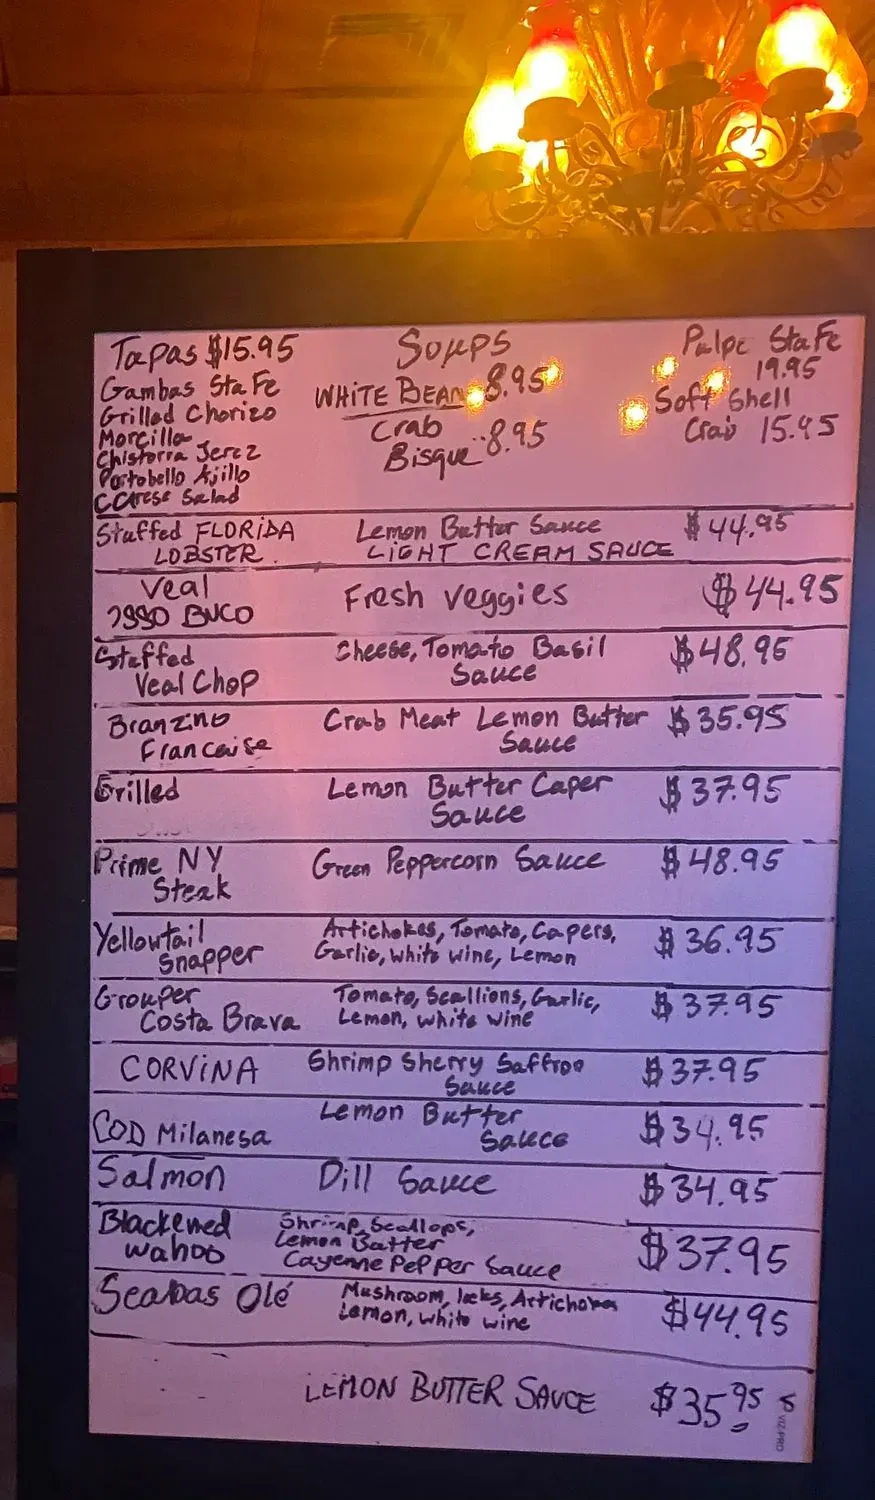 Tapas $15.95
Gambas Sta Fe
Grilled Chorizo
Morcilla
Chistorra Jerez
Portobello Ajillo
Salad
Soups
WHITE BEAN 8.95
Crab
Bisque 8.95
Pulpo Sta Fe
19.95
Soft Shell
Crab 15.95
Stuffed FLORIDA
LOBSTER
Lemon Butter Sauce
LIGHT CREAM SAUCE
$44.95
Veal
OSSO BUCO
Fresh veggies
$44.95
Stuffed
Veal Chop
Cheese, Tomato Basil
Sauce
$48.95
Branzino
Francaise
Crab Meat Lemon Butter
Sauce
$35.95
Grilled
Lemon Butter Caper
Sauce
$37.95
Prime NY
Steak
Green Peppercorn Sauce
$48.95
Yellowtail
Snapper
Artichokes, Tomato, Capers,
Garlic, white wine, Lemon
$36.95
Grouper
Costa Brava
Tomato, Scallions, Garlic,
Lemon, white wine
$37.95
CORVINA
Shrimp Sherry Saffron
Sauce
$37.95
COD Milanesa
Lemon Butter
Sauce
$34.95
Salmon
Dill Sauce
$34.95
Blackened
wahoo
Shrimp, Scallops,
Lemon Butter
Cayenne Pepper Sauce
$37.95
Olé
Mushroom, Artichokes
Lemon, white wine
$44.95
LEMON BUTTER SAUCE
$35.95
VIZ-PRO